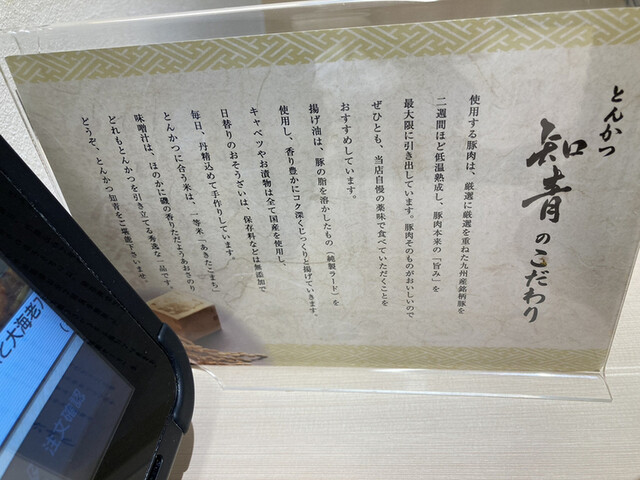 とんかつ
知青のこだわり
使用する豚肉は、厳選に厳選を重ねた九州産銘柄豚を
二週間ほど低温熟成し、豚肉本来の「旨み」を
最大限に引き出しています。豚肉そのものがおいしいので
ぜひとも、当店自慢の薬味で食べていただくことを
おすすめしています。
揚げ油は、豚の脂を溶かしたもの（純製ラード）を
使用し、香り豊かにコク深くじっくりと揚げていきます。
キャベツやお漬物は全て国産を使用し、
日替りのおそうざいは、保存料などは無添加で
毎日、丹精込めて手作りしています。
とんかつに合う米は、一等米「あきたこまち」
味噌汁は、ほのかに磯の香りただようあおさのり
どれもとんかつを引き立てる秀逸な一品です。
どうぞ、とんかつ知青をご堪能下さいませ。
と大海老
注文確認